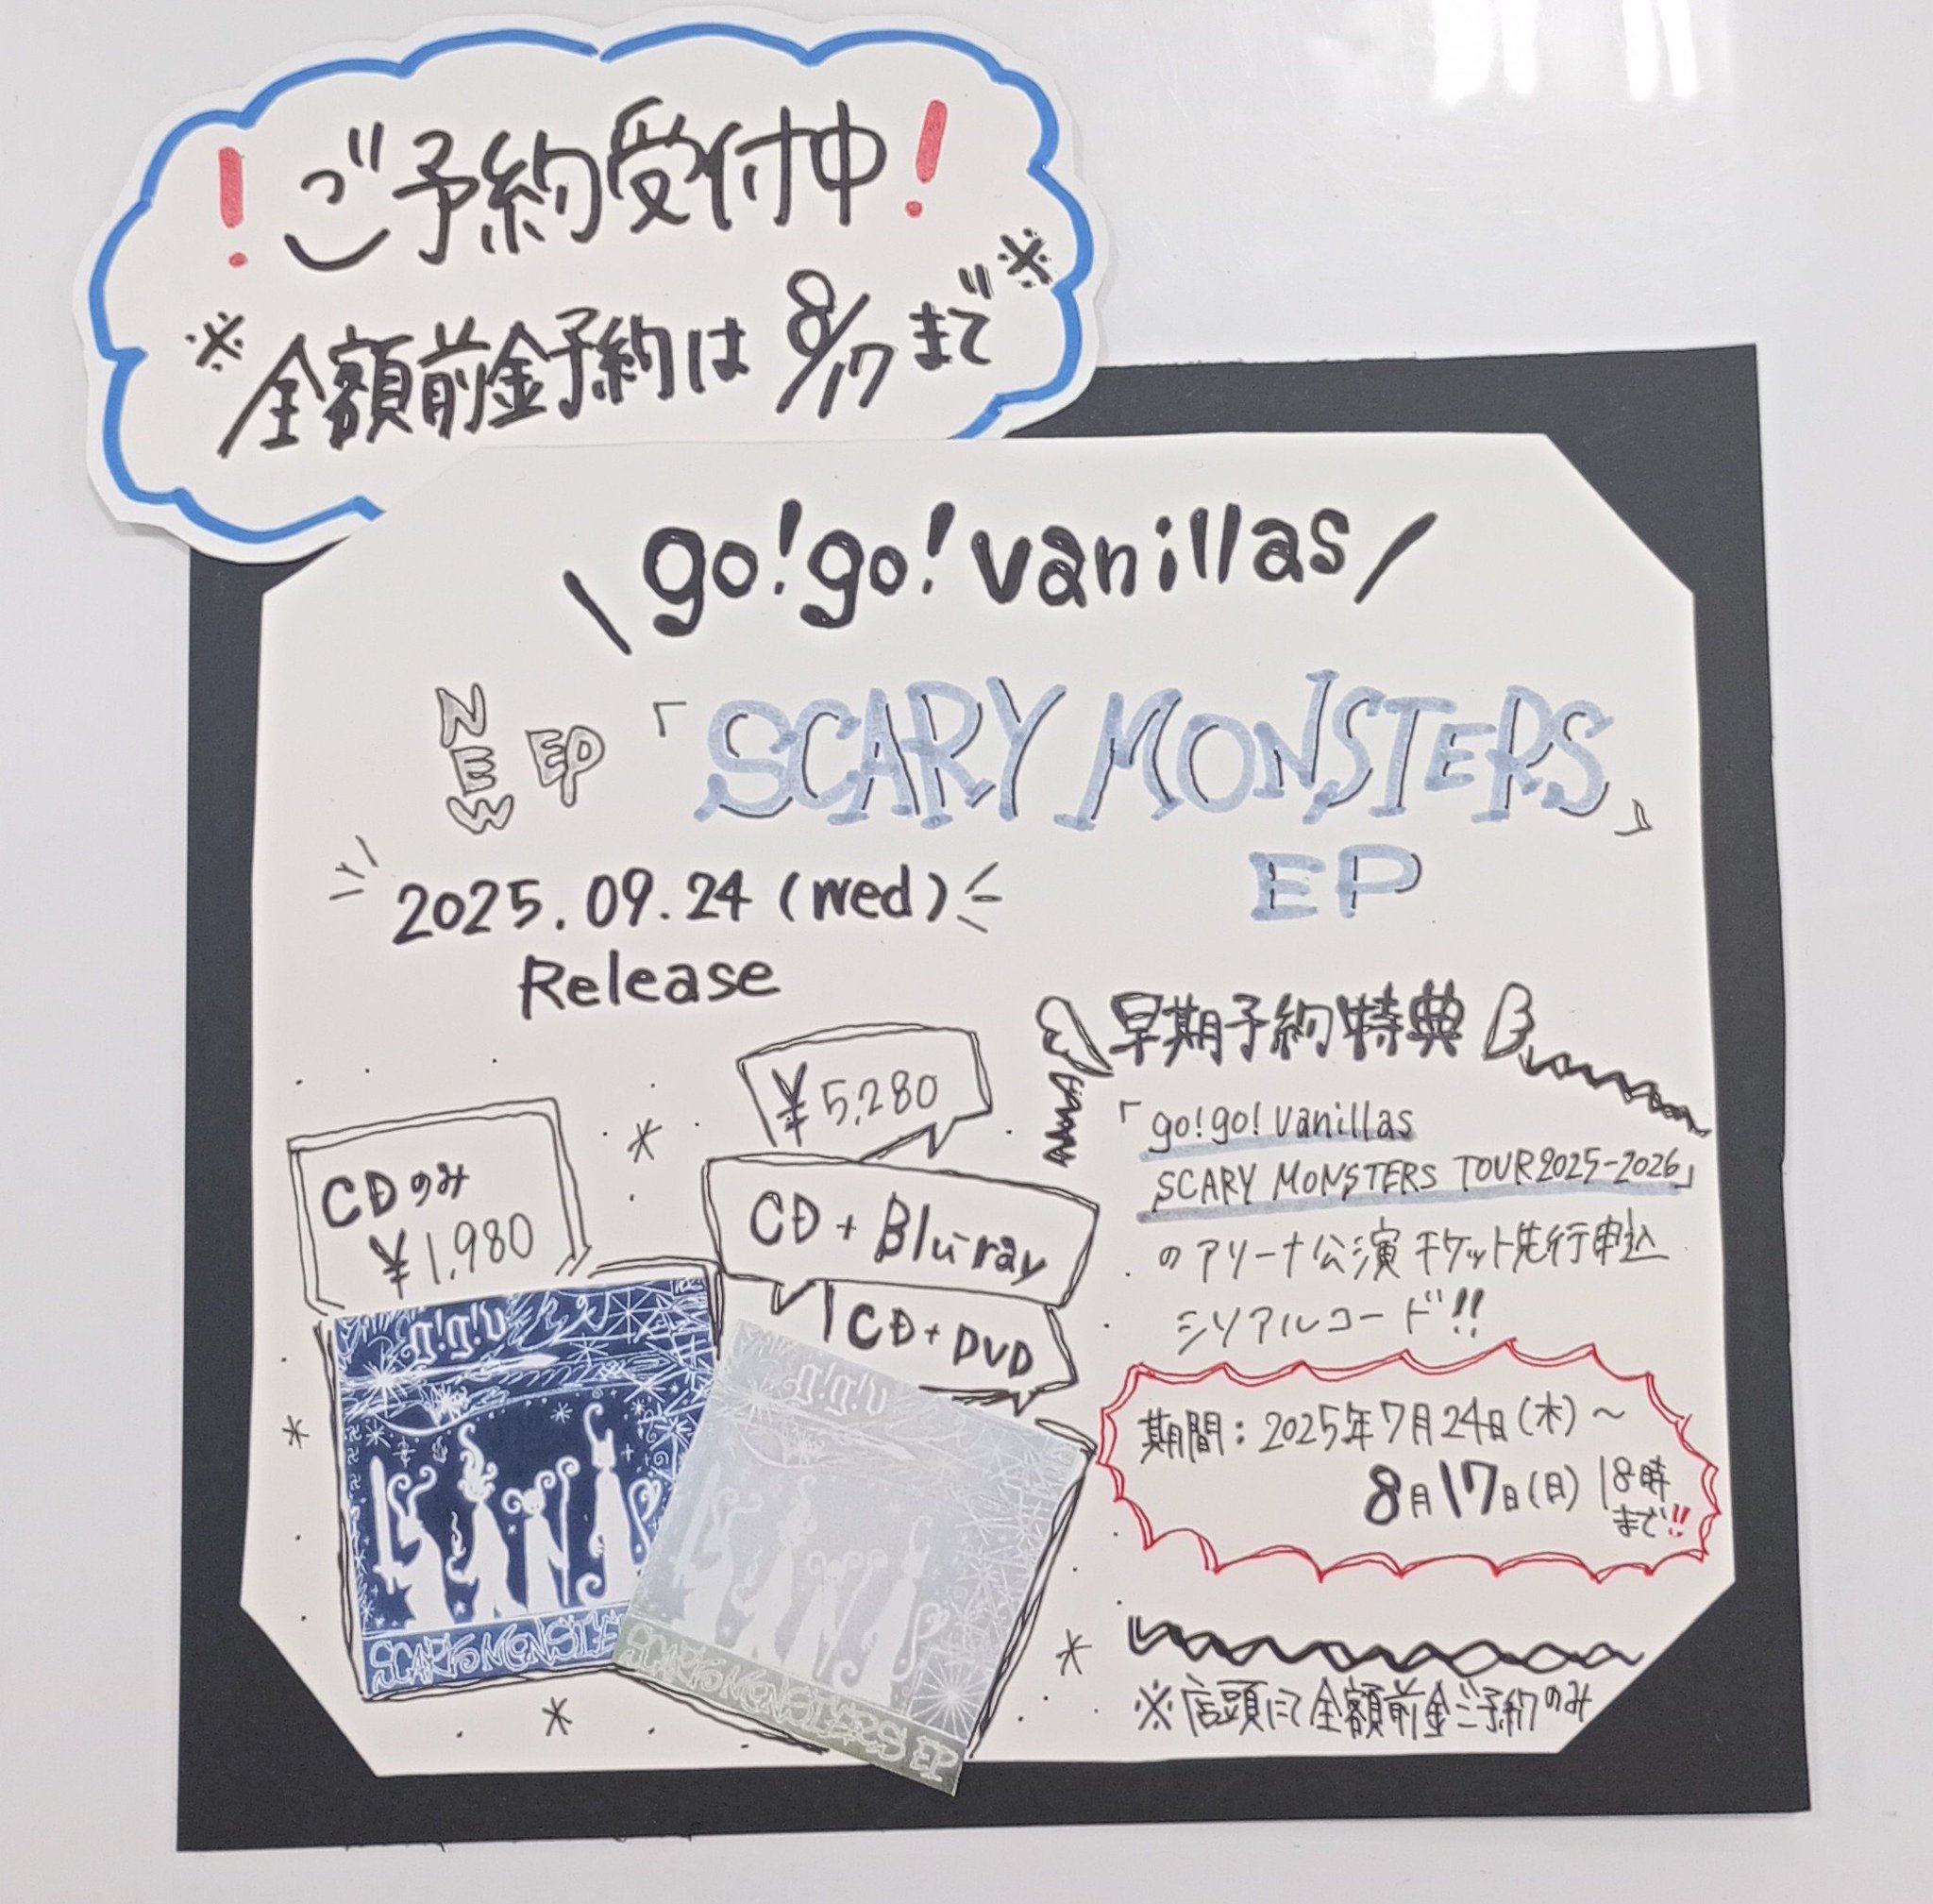 !ご予約受付中!
※全額前金予約は8/17まで※
\go!go!vanillas/
NEW EP 「SCARY MONSTERS」
EP
2025.09.24(wed)
Release
CDのみ
¥1,980
¥5,280
CD+Blu-ray
CD+DVD
g!g!v
SCARY MONSTE
g!g!v
SCARY MONSTERS EP
早期予約特典
「go!go!vanillas
SCARY MONSTERS TOUR2025-2026」
のアリーナ公演チケット先行申込
シリアルコード!!
期間:2025年7月24日(木)~
8月17日(日)18時
まで!!
※店頭にて全額前金ご予約のみ